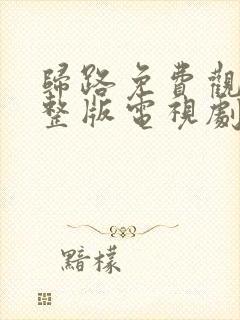 歸路免費觀
整版電視劇
黯檬